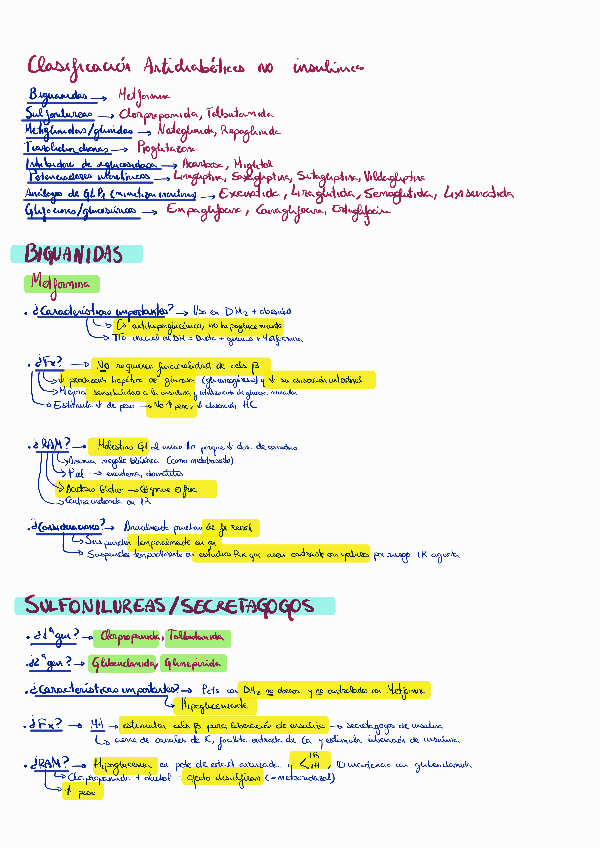 Clasificación Antidiabéticos no insulínicos
Biguanidas → Metformina
Sulfonilureas → Clorpropamida, Tolbutamida
Metiglinidas/glinidas → Nateglinida, Repaglinida
Tiazolidindionas → Pioglitazona
Inhibidores de α glucosidasa → Acarbosa, Miglitol
Potenciadores incretínicos → Linagliptina, Saxagliptina, Sitagliptina, Vildagliptina
Análogos de GLP1 (mimetizan incretina) → Exenatida, Liraglutida, Semaglutida, Lixisenatida
Glifocinas/glucosúricos → Empaglifocina, Canaglifocina, Ertuglifocina
BIGUANIDAS
Metformina
· ¿Características importantes? → Uso en DM2 + obesidad
→ Es antihiperglucémico, no hipoglucemiante
→ Tto inicial de DM = Dieta + ejercicio + Metformina
· ¿Fx? → No requieren funcionalidad de cels β
→ ↓ producción hepática de glucosa (gluconeogénesis) y ↓ su absorción intestinal
→ Mejora sensibilidad a la insulina y utilización de glucosa
→ Estimula ↓ de peso → No ↑ peso, ↓ absorción HC
· ¿RAM? → Molestias GI
→ Anemia megaloblástica
→ Piel → eritema, dermatitis
→ Acidosis láctica →
→ Contraindicada en IR
· ¿Consideraciones? → Anualmente pruebas de fx renal
→ Suspender temporalmente en qx
→ Suspender temporalmente en estudios Rx que usen contraste con yodados por riesgo IR aguda
SULFONILUREAS/SECRETAGOGOS
· ¿1ª gen? → Clorpropamida, Tolbutamida
· ¿2ª gen? → Glibenclamida, Glimepirida
· ¿Características importantes? → Pcts con DM2 no obesos y no controlados con Metformina
→ Hipoglucemiante
· ¿Fx? → MA → estimulan cels β para liberación de insulina → secretagogos de insulina
→ cierre de canales de K, facilita entrada de Ca y estimula liberación de insulina
· ¿RAM? → Hipoglucemia en pcts de edad avanzada y < IR IH, incidencia con glibenclamida
→ Clorpropamida + alcohol = efecto disulfiram (~metronidazol)
→ ↑ peso